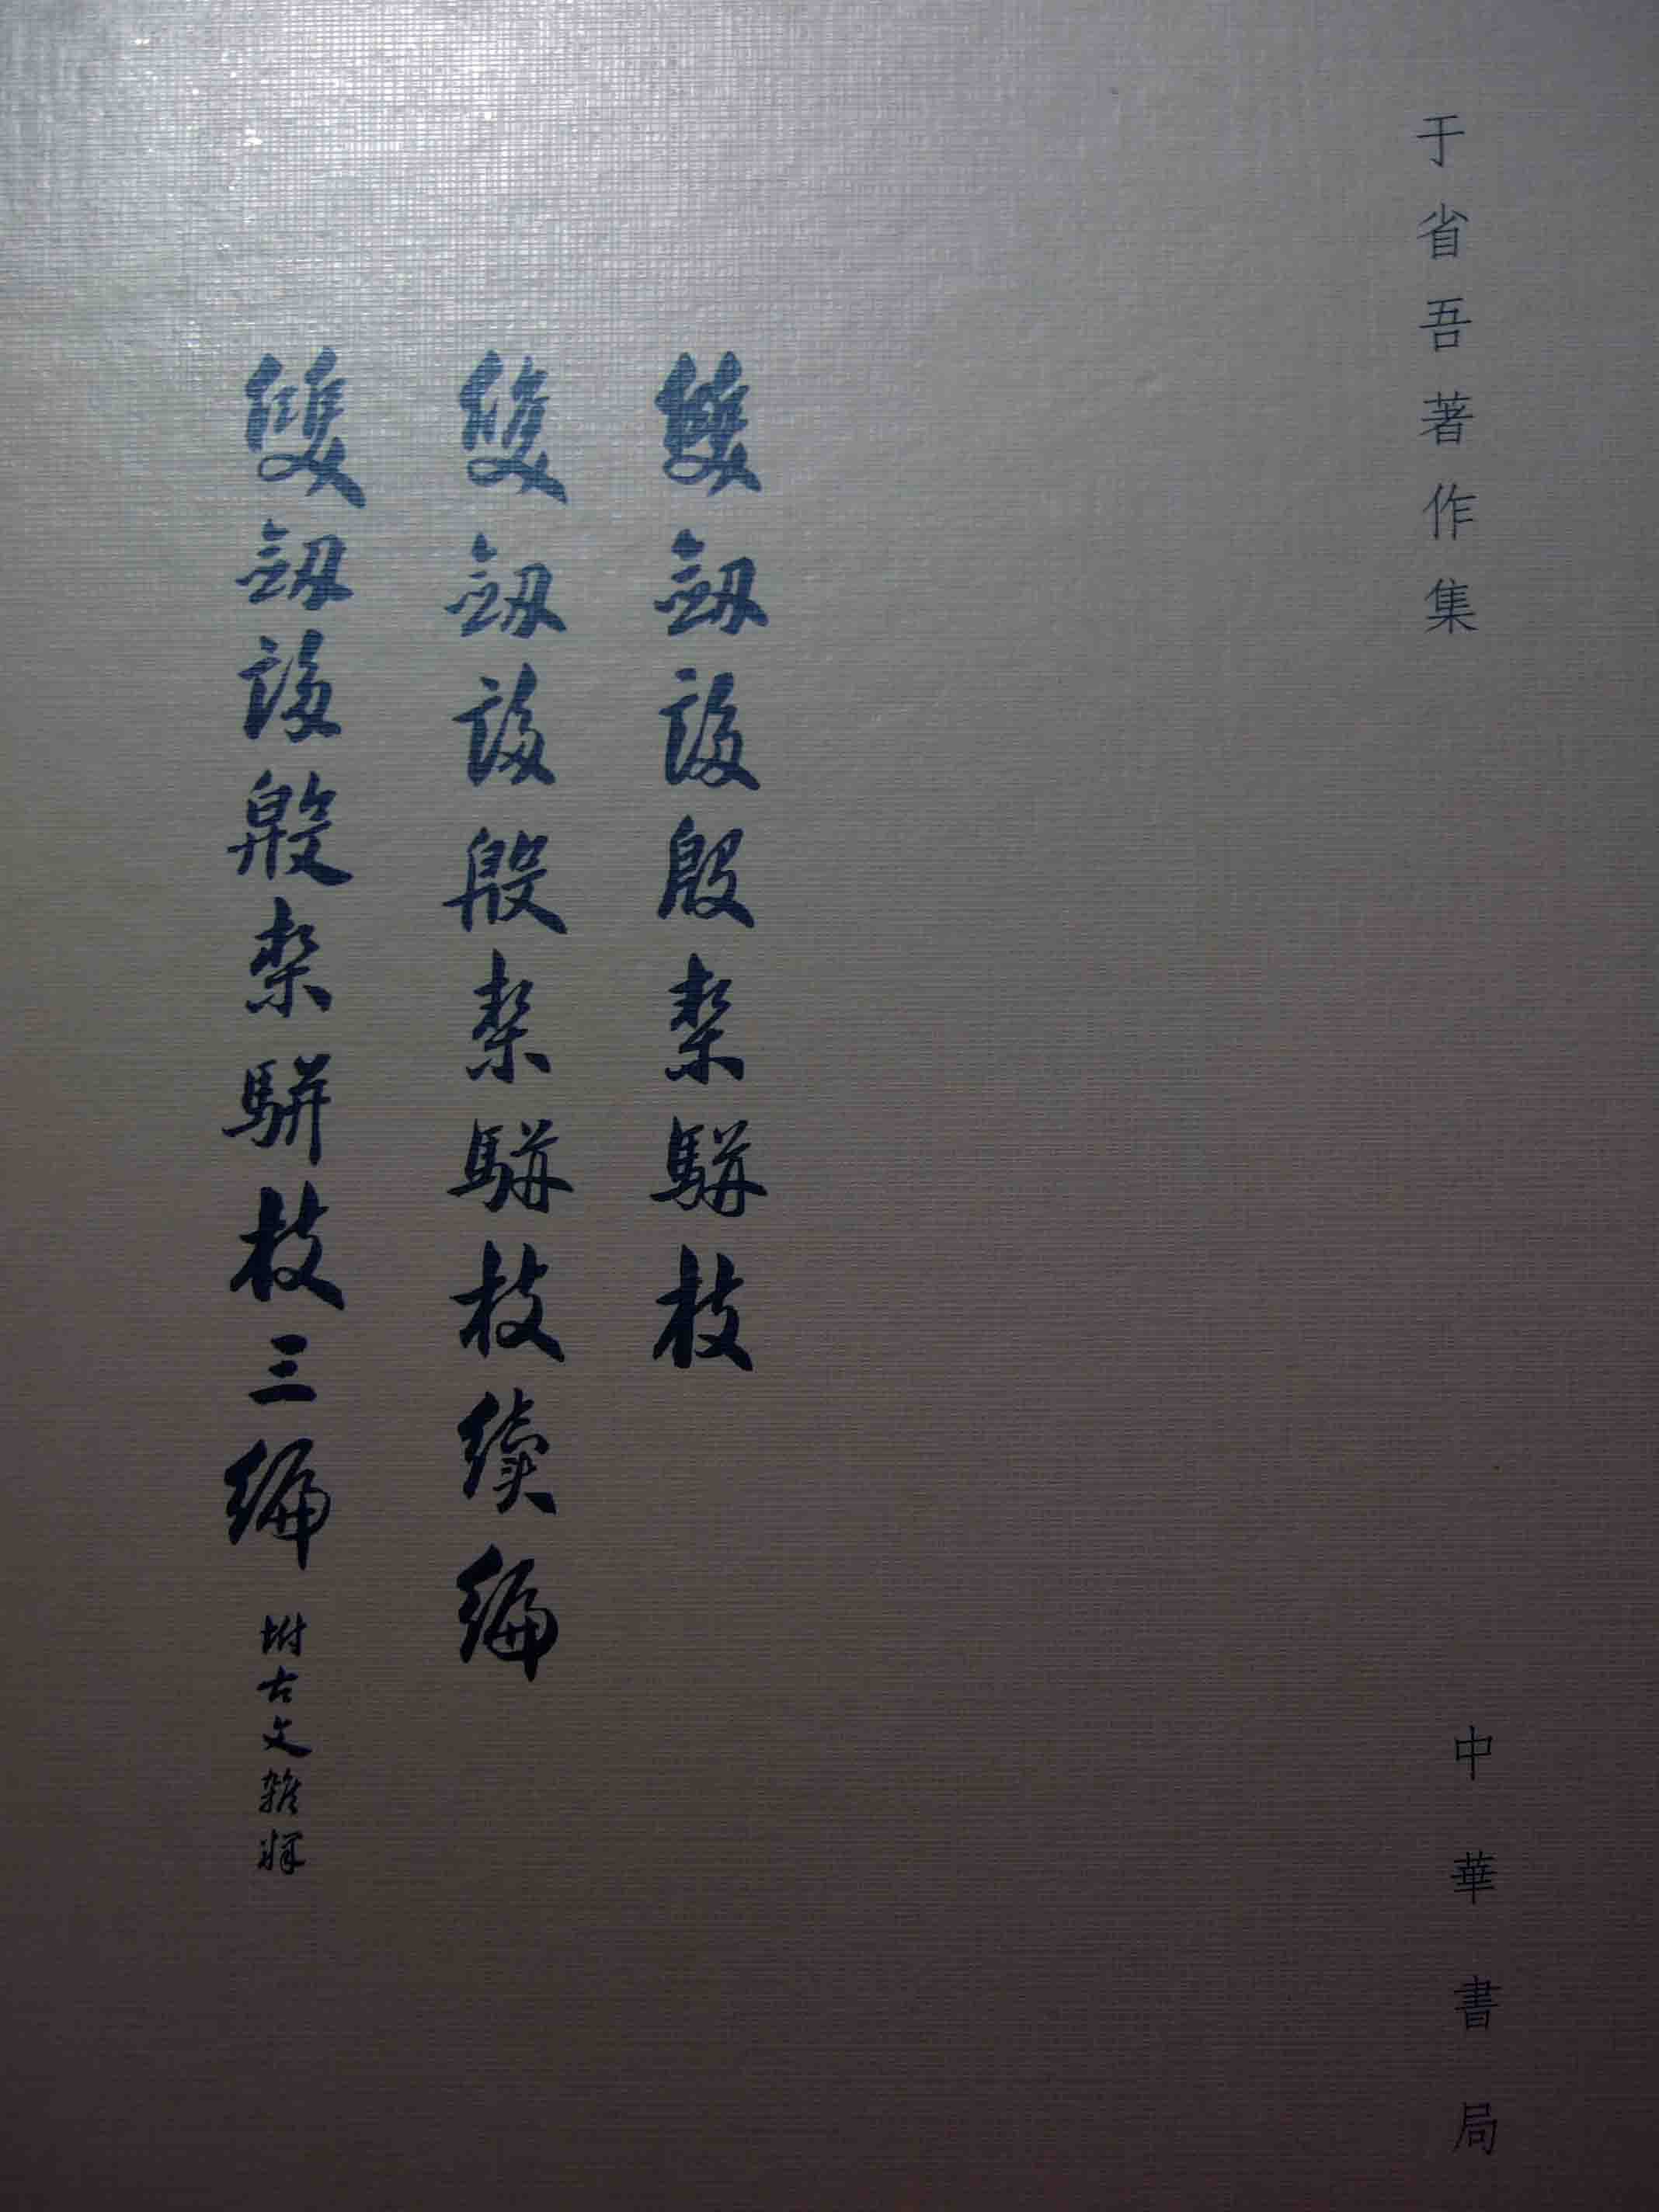 于省吾著作集
雙劍誃殷栔駢枝
雙劍誃殷栔駢枝續編
雙劍誃殷栔駢枝三編
附古文雜釋
中華書局